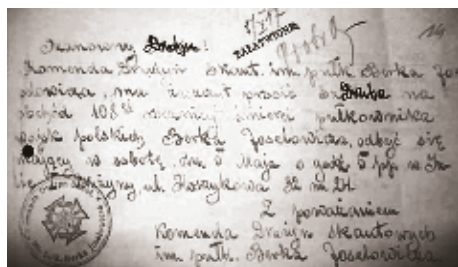 Szanowny Druhu!
ZAŁATWIONE
14
Komenda Drużyn Skaut. im. pułk. Berka Jo-
selowicza, ma zaszczyt prosić Sz. Druha na
obchód 108 rocznicy śmierci pułkownika
wojsk polskich Berka Joselowicza, odbyć się
mający w sobotę, dn. 5 Maja o godz. 5 pp. w
ul. Hoszykowa 32 m 24.
Z poważaniem
Komenda Drużyn Skautowych
im. pułk. Berka Joselowicza